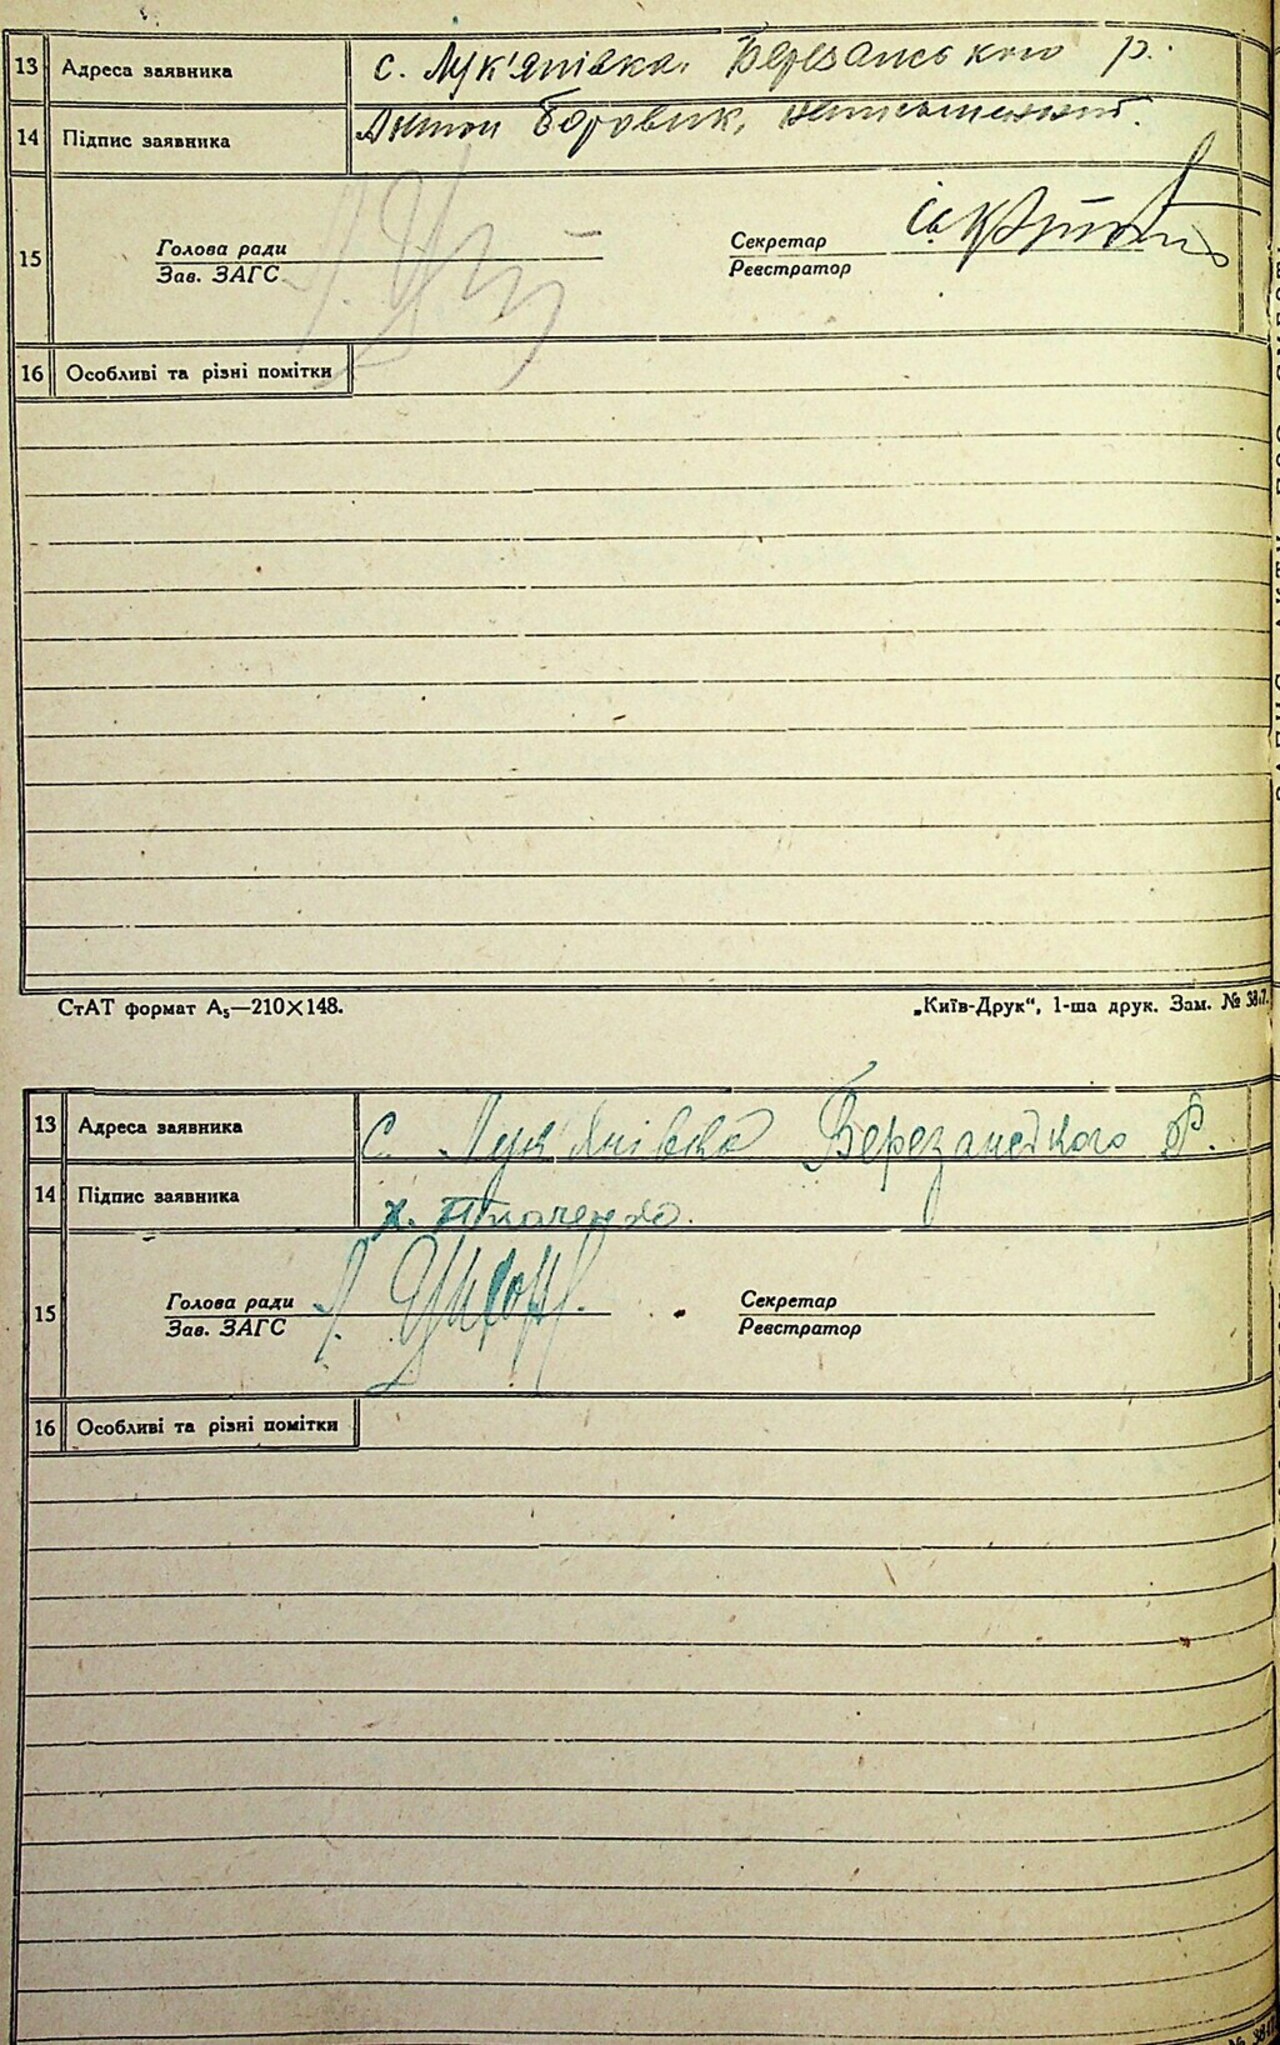 13 Адреса заявника с. Лук'янівка. Березанського р.
14 Підпис заявника Антон Боровик, неписьменний.
15 Голова ради Секретар
Зав. ЗАГС Реєстратор
16 Особливі та різні помітки
СтАТ формат А₅—210×148. „Київ-Друк“, 1-ша друк. Зам. №
13 Адреса заявника с. Лук'янівка Березанського р.
14 Підпис заявника х. Ткаченко.
15 Голова ради Секретар
Зав. ЗАГС Реєстратор
16 Особливі та різні помітки